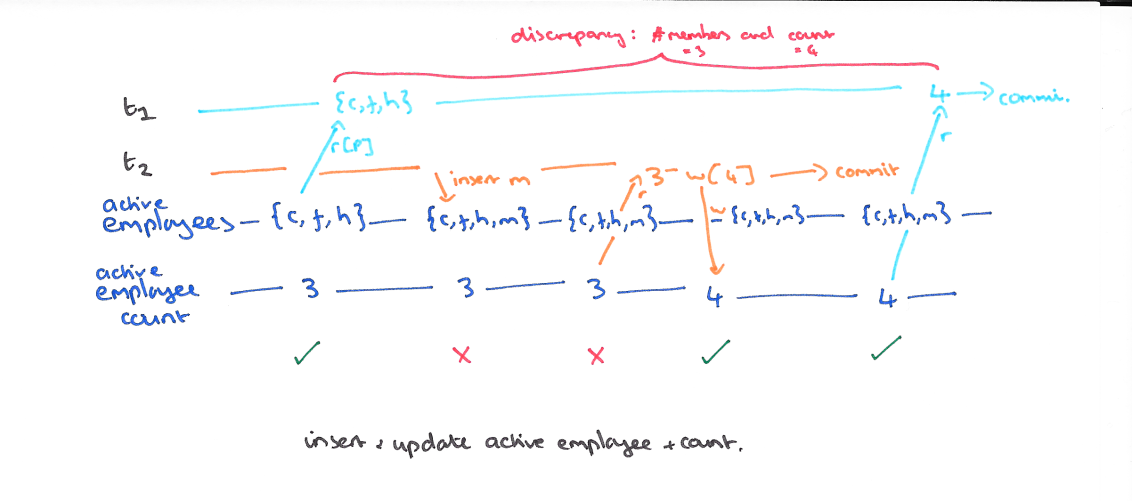 discrepancy: #members and count
= 3 = 4
t1 {c,f,h} 4 → commi.
r[P] r
t2 insert m 3 - w[4] → commit
r w
active
employees - {c, f, h} - {c,f,h,m} - {c,f,h,m} - {c,f,h,m} - {c,f,h,m} -
active
employee
count
3 3 3 4 4
✓ x x ✓ ✓
insert & update active employee + count.